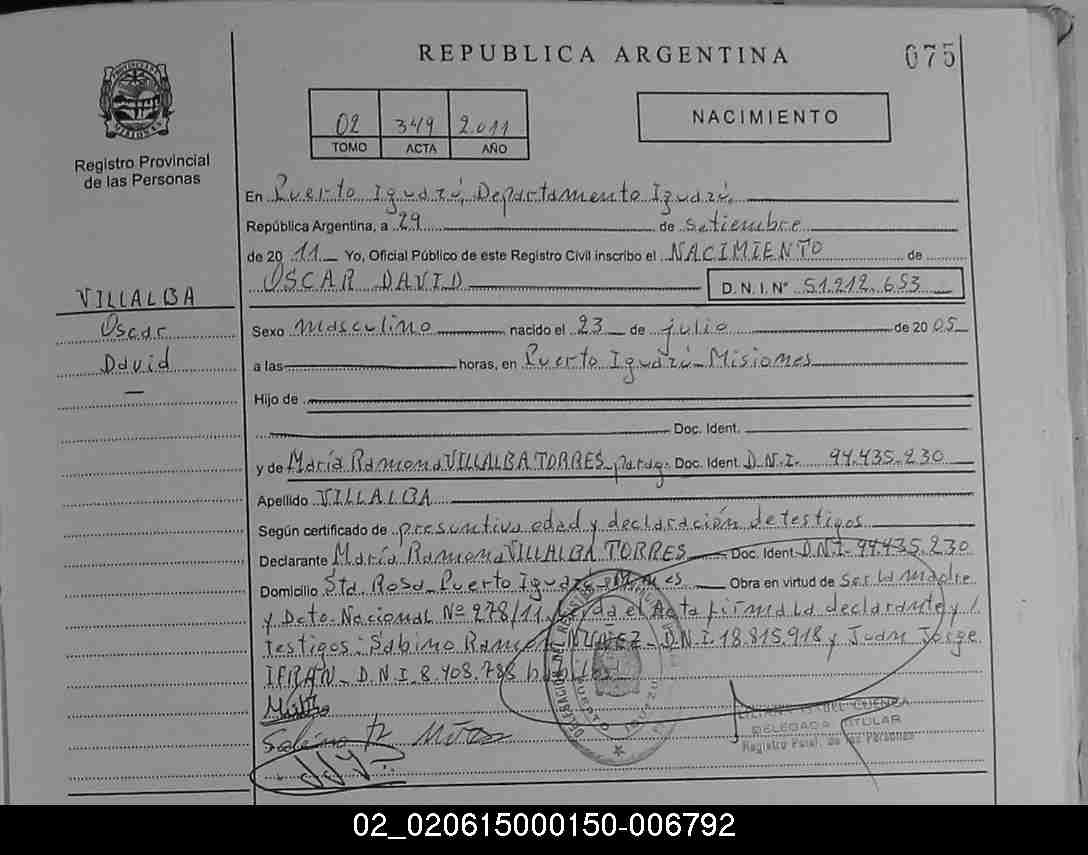 REPUBLICA ARGENTINA
075
02 349 2.011
TOMO ACTA AÑO
NACIMIENTO
PROVINCIA DE MISIONES
Registro Provincial
de las Personas
En Puerto Iguazú, Departamento Iguazú,
República Argentina, a 29 de setiembre
de 20 11 Yo, Oficial Público de este Registro Civil inscribo el NACIMIENTO de
OSCAR DAVID D.N.I.Nº 51.212.653
VILLALBA
Oscar
David
Sexo masculino nacido el 23 de julio de 20 05
a las horas, en Puerto Iguazú - Misiones
Hijo de
Doc. Ident.
y de María Ramona VILLALBA TORRES parag. Doc. Ident. D.N.I. 94.435.230
Apellido VILLALBA
Según certificado de presuntiva edad y declaración de testigos
Declarante María Ramona VILLALBA TORRES Doc. Ident. D.N.I. 94.435.230
Domicilio Sta Rosa - Puerto Iguazú - Obra en virtud de Ser la madre
y Dcto. Nacional Nº 278/11. Leída el Acta firma la declarante y
testigos: Sabino Ramón NUÑEZ - D.N.I. 18.815.918 y Juan Jorge
IFRAN - D.N.I. 8.408.788
PUERTO IGUAZU
LILIANA ISABEL CUENCA
DELEGADA TITULAR
Registro Pcial. de las Personas
02_020615000150-006792